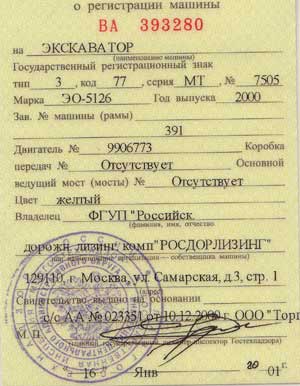 о регистрации машины
ВА 393280
на ЭКСКАВАТОР
(наименование машины)
Государственный регистрационный знак
тип 3, код 77, серия МТ, № 7505
Марка ЭО-5126 Год выпуска 2000
Зав. № машины (рамы)
391
Двигатель № 9906773 Коробка
передач № Отсутствует Основной
ведущий мост (мосты) № Отсутствует
Цвет желтый
Владелец ФГУП "Российск
(фамилия, имя, отчество
дорожн. лизинг. комп "РОСДОРЛИЗИНГ"
собственника машины)
129110, г. Москва, ул. Самарская, д.3, стр. 1
(адрес)
Свидетельство выдано на основании
с/с АА № 023351 от 10.12.2000 г. ООО "Торг
М.П.
инспектор Гостехнадзора)
16 Янв 20 01 г.